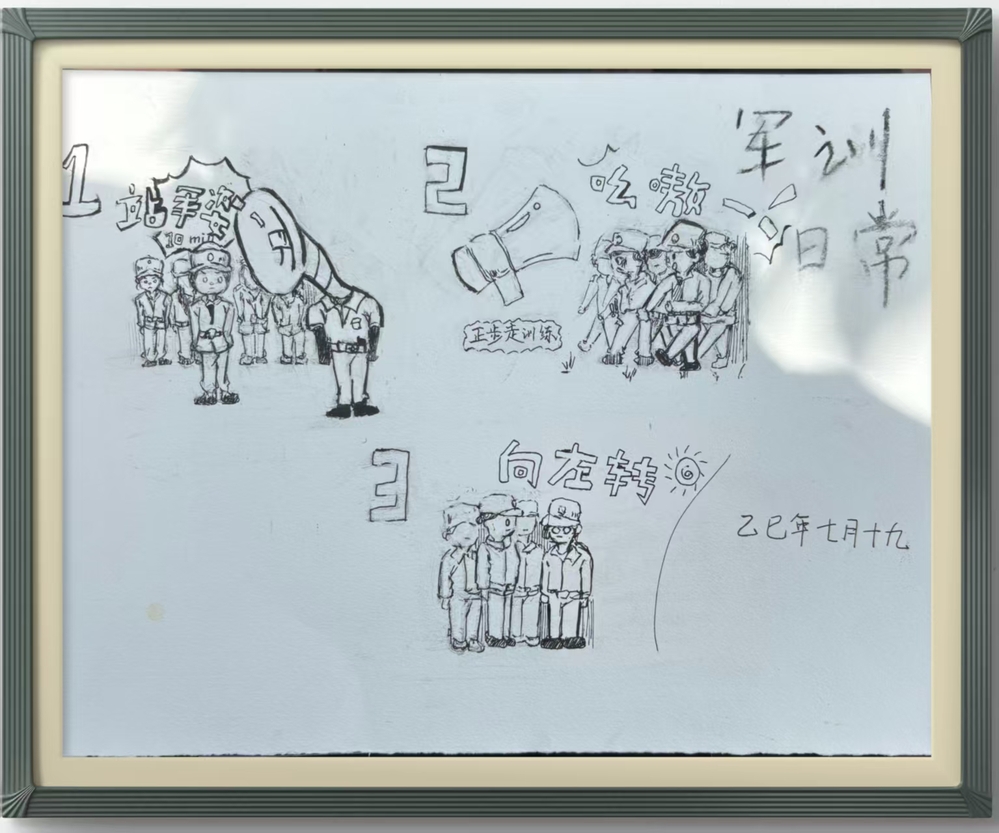 军训
日常
1
站军姿
10 min
2
吆嗷
正步走训练
3
向左转
乙巳年七月十九